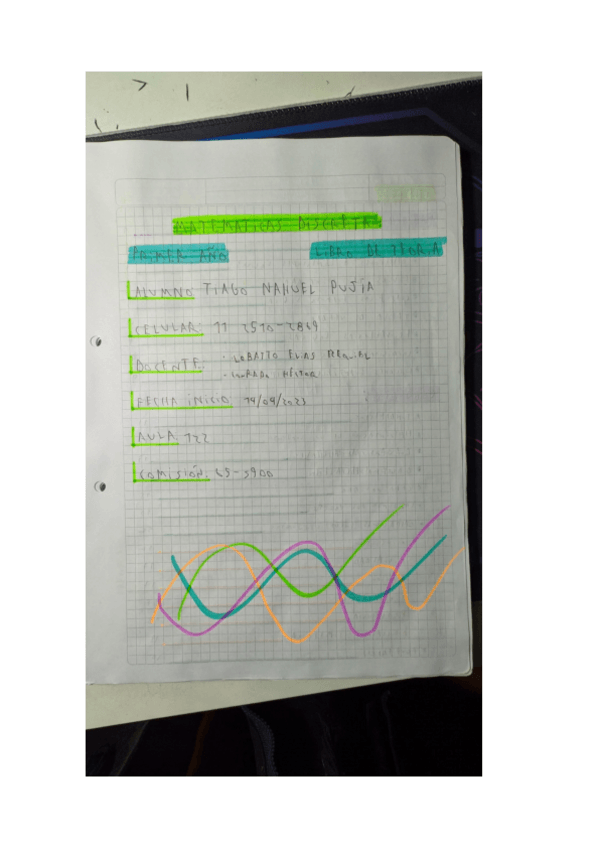 MATEMATICAS DISCRETA
PRIMER AÑO
LIBRO DE TEORIA
ALUMNO TIAGO NAHUEL PUJIA
CELULAR: 11 2570-2869
DOCENTE: · LOBATTO ELIAS
· NESTOR
FECHA INICIO 14/04/2023
AULA: 122
COMISIÓN: 69-5900